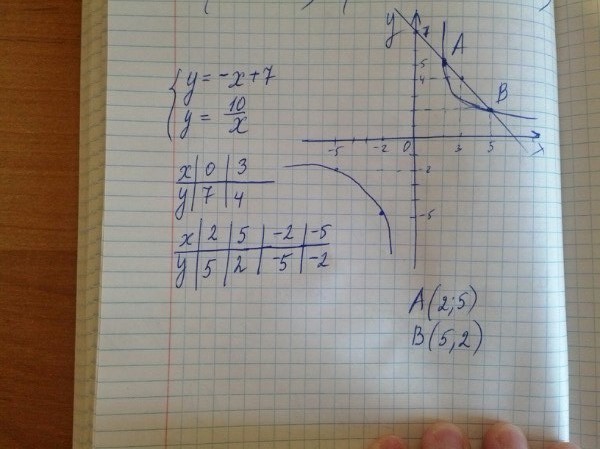 y = -x+7
y = 10/x
x | 0 | 3
y | 7 | 4
x | 2 | 5 | -2 | -5
y | 5 | 2 | -5 | -2
y
7
A
5
4
B
-5 -2 0 2 3 5 x
-2
-5
A(2;5)
B(5,2)